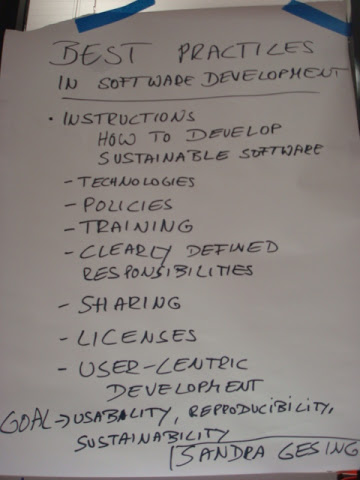 BEST PRACTICES
IN SOFTWARE DEVELOPMENT
· INSTRUCTIONS
HOW TO DEVELOP
SUSTAINABLE SOFTWARE
- TECHNOLOGIES
- POLICIES
- TRAINING
- CLEARLY DEFINED
RESPONSIBILITIES
- SHARING
- LICENSES
- USER-CENTRIC
DEVELOPMENT
GOAL → USABILITY, REPRODUCIBILITY,
SUSTAINABILITY
SANDRA GESING